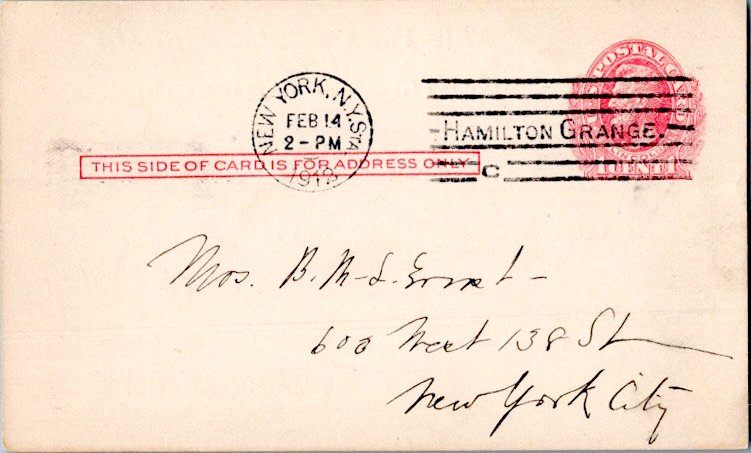 U.S. POSTAL CARD
NEW YORK, N.Y. STA
FEB 14
2-PM
1913
HAMILTON GRANGE.
C
1 CENT 1
THIS SIDE OF CARD IS FOR ADDRESS ONLY
Mrs. B. M-L. Ernst-
600 West 138 St
New York City